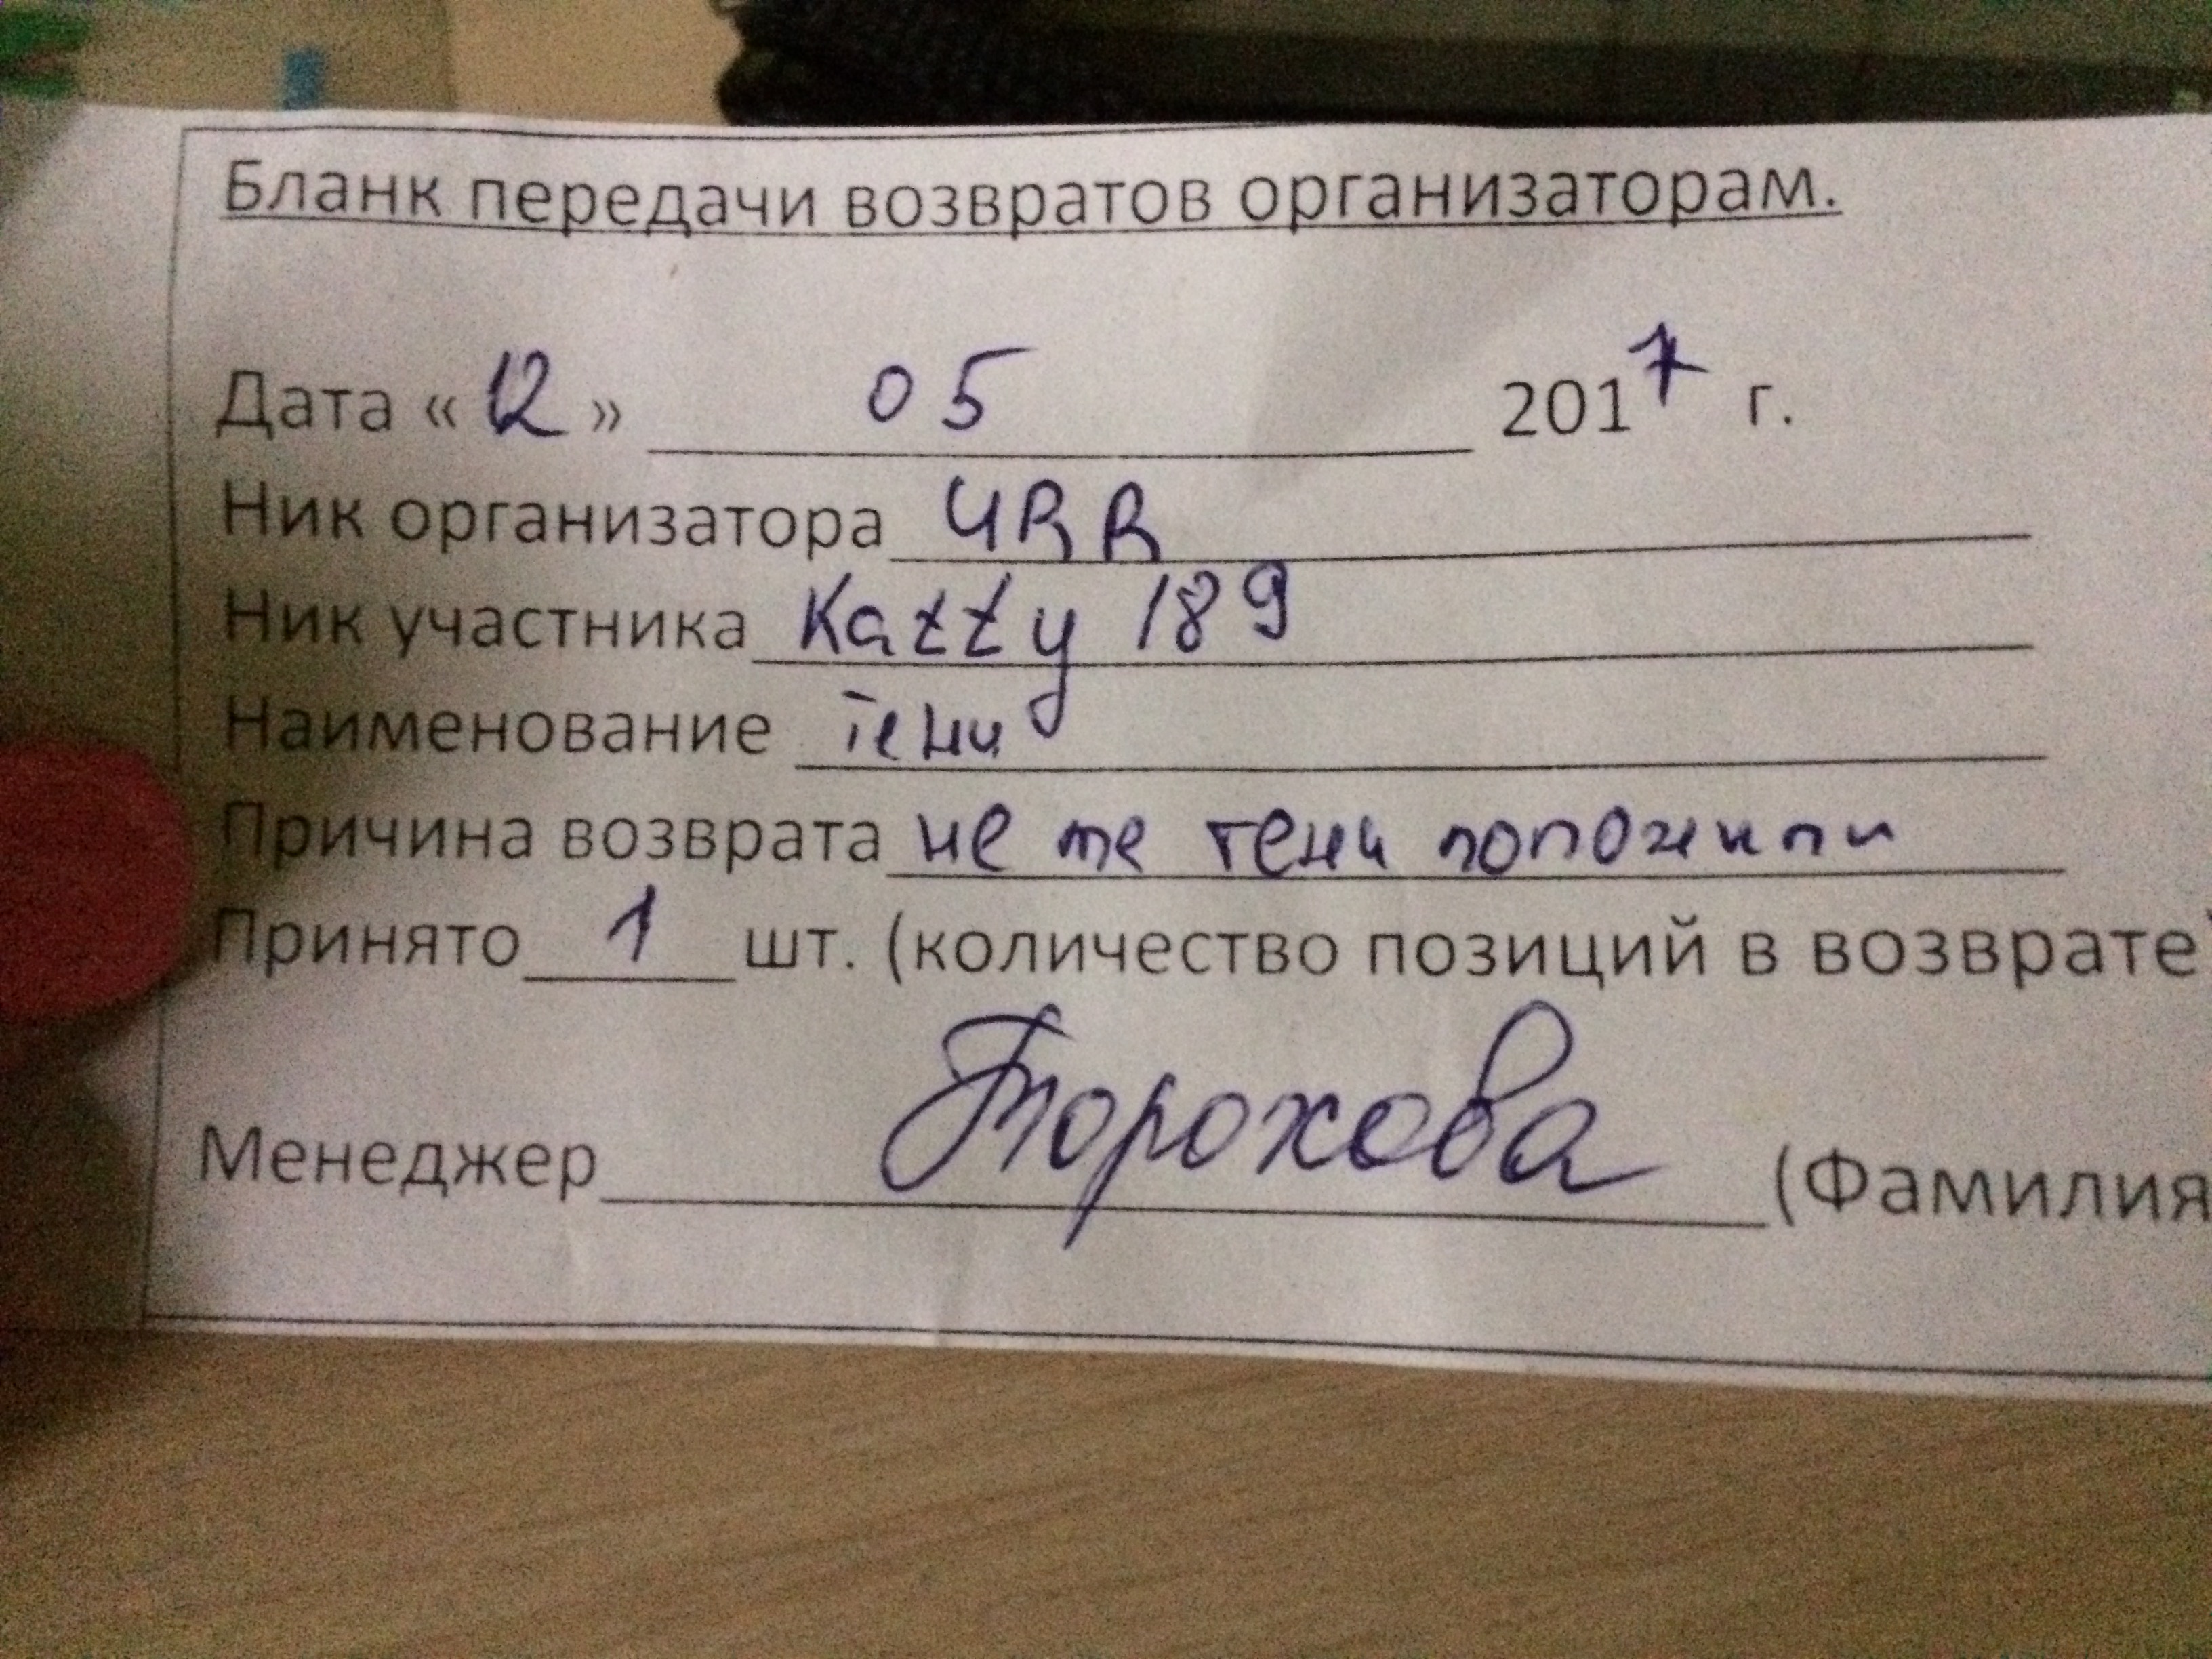 Бланк передачи возвратов организаторам.
Дата «12» 05 2017 г.
Ник организатора URR
Ник участника Kazzy 189
Наименование тени
Причина возврата не те тени положили
Принято 1 шт. (количество позиций в возврате)
Менеджер Торохова (Фамилия